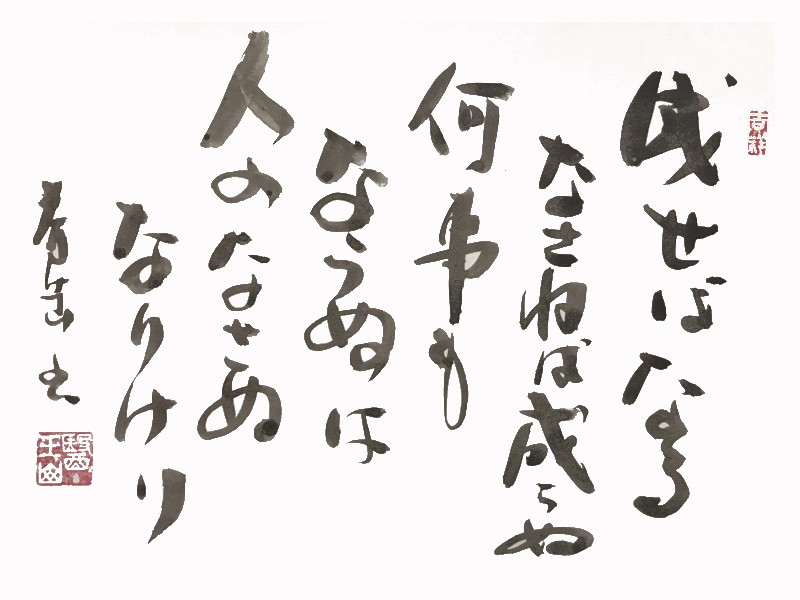 吉祥
成せばなる
なさねば成らぬ
何事も
ならぬは
人のなさぬ
なりけり